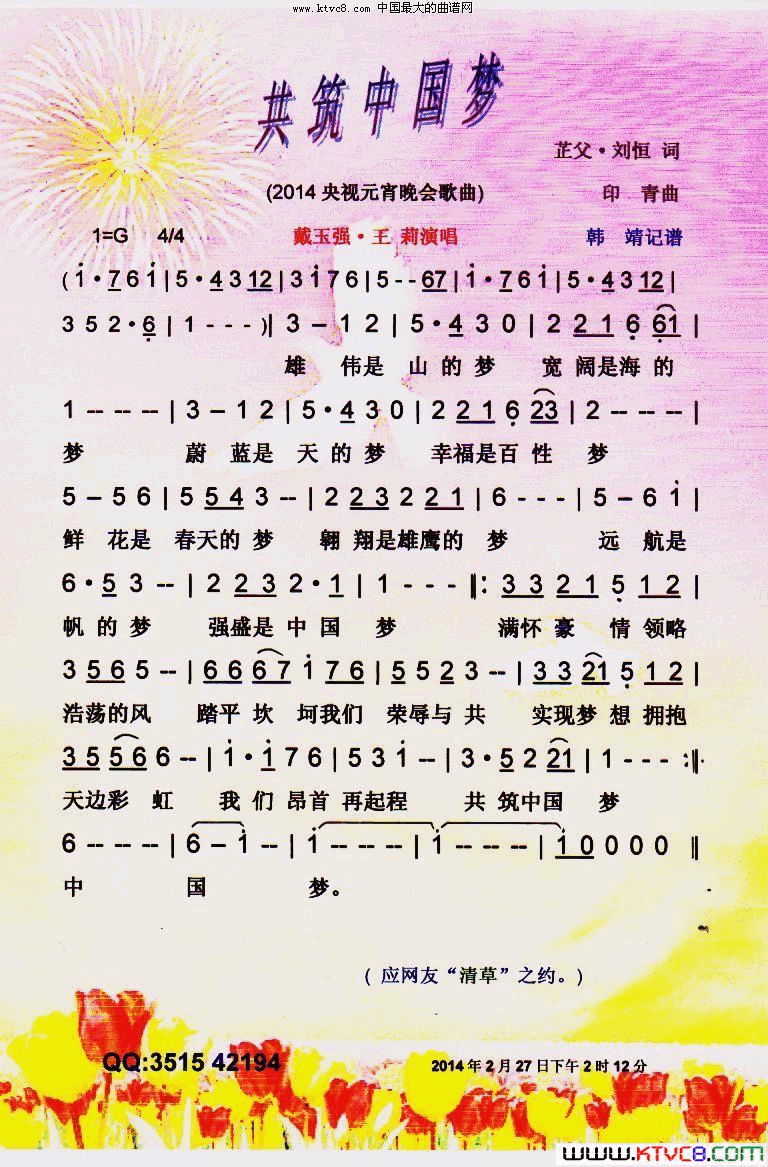 www.ktvc8.com 中国最大的曲谱网
共筑中国梦
芷父·刘恒 词
(2014央视元宵晚会歌曲) 印 青曲
1=G 4/4 戴玉强·王 莉演唱 韩 靖记谱
(1·761|5·4312|3176|5--67|1·761|5·4312|
352·6|1---)|3-12|5·430|2216 61|
雄 伟是 山 的 梦 宽 阔是海 的
1----|3-12|5·430|221623|2----|
梦 蔚 蓝是 天 的 梦 幸福是百 性 梦
5-56|5543--|223221|6---|5-61|
鲜 花是 春天的 梦 翱 翔是雄鹰的 梦 远 航是
6·53--|2232·1|1---‖:3321512|
帆 的 梦 强盛是 中 国 梦 满怀 豪 情 领略
3565--|66667176|5523--|3321512|
浩荡的风 踏平 坎 坷我们 荣辱与 共 实现梦 想 拥抱
355566--|1·176|531--|3·5221|1---:‖
天边彩 虹 我 们 昂首 再起程 共 筑中国 梦
6----|6-1--|1----|1----|10000‖
中 国 梦。
( 应网友“清草”之约。)
QQ:3515 42194 2014年2月27日下午2时12分
www.KTVC8.com